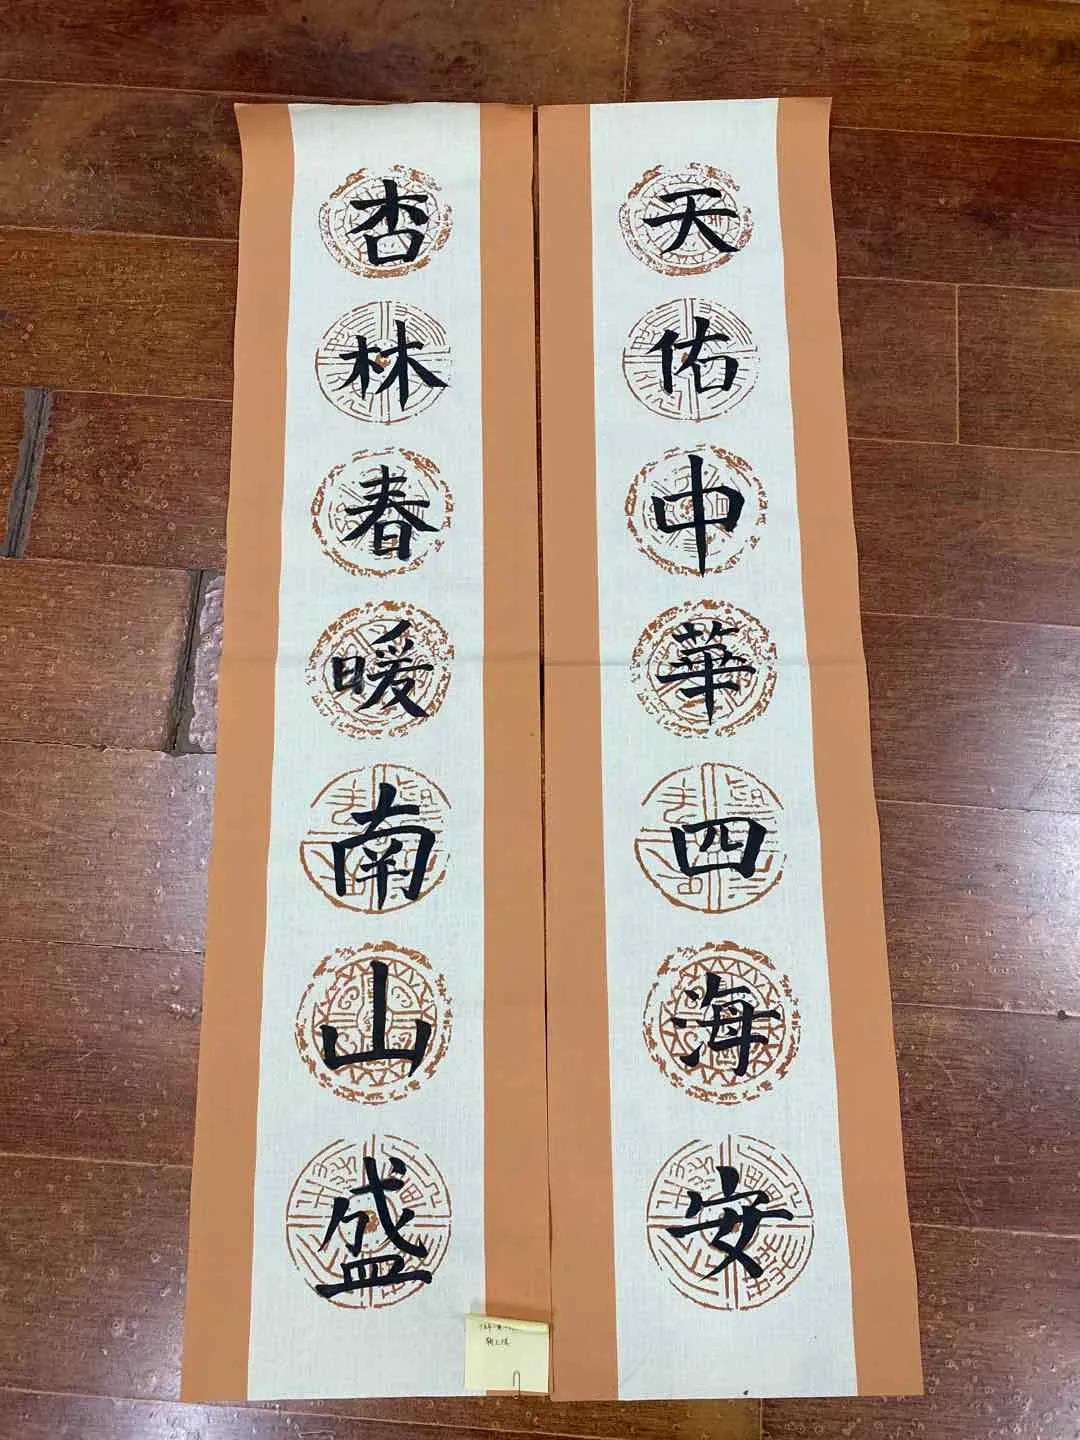 天佑中華四海安
杏林春暖南山盛